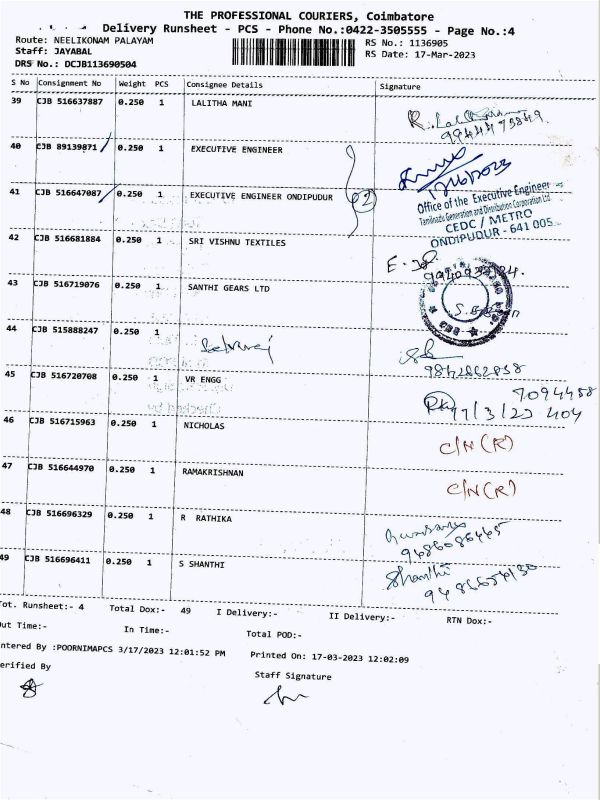 THE PROFESSIONAL COURIERS, Coimbatore
Delivery Runsheet - PCS - Phone No.:0422-3505555 - Page No.:4
Route: NEELIKONAM PALAYAM
RS No.: 1136905
Staff: JAYABAL
RS Date: 17-Mar-2023
DRS No.: DCJB113690504
S No Consignment No Weight PCS Consignee Details Signature
39 CJB 516637887 0.250 1 LALITHA MANI
40 CJB 89139871 0.250 1 EXECUTIVE ENGINEER
41 CJB 516647087 0.250 1 EXECUTIVE ENGINEER ONDIPUDUR 02
Office of the Executive Engineer
Tamilnadu Generation and Distribution Corporation Ltd
CEDC / METRO
ONDIPUDUR - 641 005
42 CJB 516681884 0.250 1 SRI VISHNU TEXTILES
43 CJB 516719076 0.250 1 SANTHI GEARS LTD
44 CJB 515888247 0.250 1 Selvaraj
9842862838
45 CJB 516720708 0.250 1 VR ENGG
46 CJB 516715963 0.250 1 NICHOLAS C/N (R)
47 CJB 516644970 0.250 1 RAMAKRISHNAN C/N (R)
48 CJB 516696329 0.250 1 R RATHIKA
9486086445
49 CJB 516696411 0.250 1 S SHANTHI Shanthi
Tot. Runsheet:- 4 Total Dox:- 49 I Delivery:- II Delivery:- RTN Dox:-
Out Time:- In Time:- Total POD:-
ntered By :POORNIMAPCS 3/17/2023 12:01:52 PM Printed On: 17-03-2023 12:02:09
erified By Staff Signature